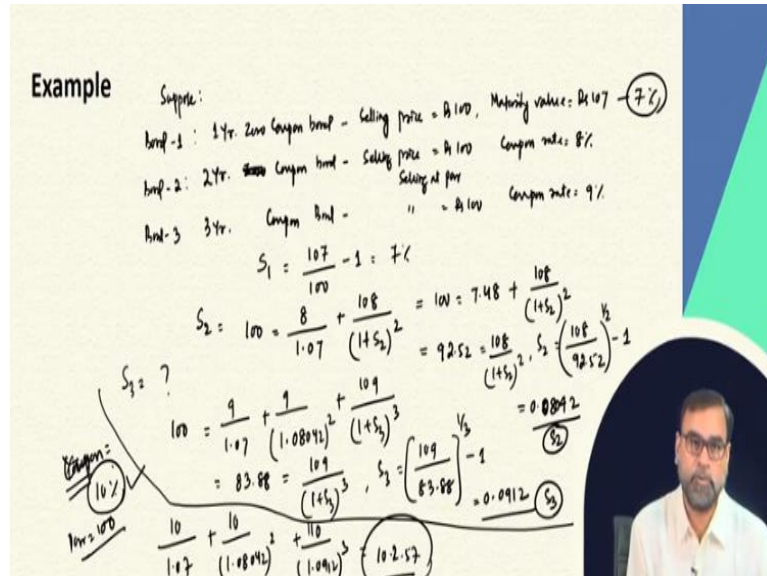 Example
Suppose:
Bond-1 : 1Yr. Zero Coupon bond - Selling price = ₨ 100, Maturity value = ₨ 107 - 7%
Bond-2 : 2Yr. Coupon bond - Selling price = ₨ 100 Coupon rate = 8%
Selling at par
Bond-3 3Yr. Coupon Bond - " = ₨ 100 Coupon rate = 9%
S₁ = 107/100 - 1 = 7%
S₂ = 100 = 8/1.07 + 108/(1+S₂)² = 100 = 7.48 + 108/(1+S₂)²
= 92.52 = 108/(1+S₂)², S₂ = (108/92.52)^1/2 - 1
= 0.08042
S₂
S₃ = ?
100 = 9/1.07 + 9/(1.08042)² + 109/(1+S₃)³
= 83.88 = 109/(1+S₃)³, S₃ = (109/83.88)^1/3 - 1
= 0.0912 S₃
Coupon =
10% ✓
Par = 100
10/1.07 + 10/(1.08042)² + 110/(1.0912)³ = 102.57